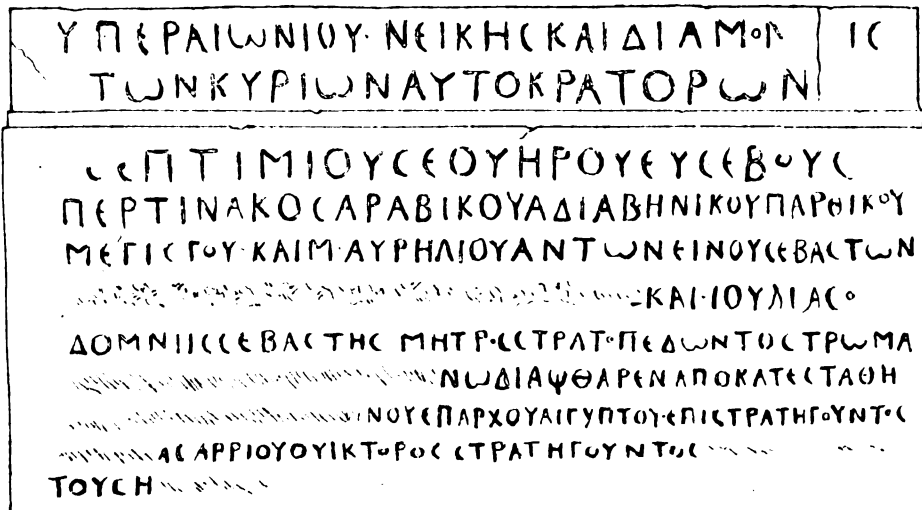 ΥΠΕΡΑΙωΝΙΟΥ·ΝΕΙΚΗϹΚΑΙΔΙΑΜοΝ ΙϹ
ΤωΝΚΥΡΙωΝΑΥΤΟΚΡΑΤΟΡωΝ
ϹεΠΤΙΜΙΟΥϹΕΟΥΗΡΟΥΕΥϹΕΒοΥϹ
ΠΕΡΤΙΝΑΚΟϹΑΡΑΒΙΚΟΥΑΔΙΑΒΗΝΙΚΟΥΠΑΡΘΙΚοΥ
ΜΕΓΙϹΓοΥ·ΚΑΙΜ·ΑΥΡΗΛΙΟΥΑΝΤωΝΕΙΝΟΥϹΕΒΑϹΤωΝ
ΚΑΙ·ΙΟΥΛΙΑϹο
ΔΟΜΝΙΙϹϹΕΒΑϹΤΗϹ ΜΗΤΡ·ϹϹΤΡΑΤ·ΠΕΔωΝΤΟϹΤΡωΜΑ
ΝωΔΙΑΨΘΑΡΕΝΑΠΟΚΑΤΕϹΤΑΘΗ
ΝΟΥΕΠΑΡΧΟΥΑΙΓΥΠΤΟΥ·ΕΠΙϹΤΡΑΤΗΓοΥΝΤοϹ
ΑϹΑΡΡΙΟΥΟΥΙΚΤοΡΟϹ ϹΤΡΑΤΗΓοΥΝΤοϹ
ΤΟΥϹΗ